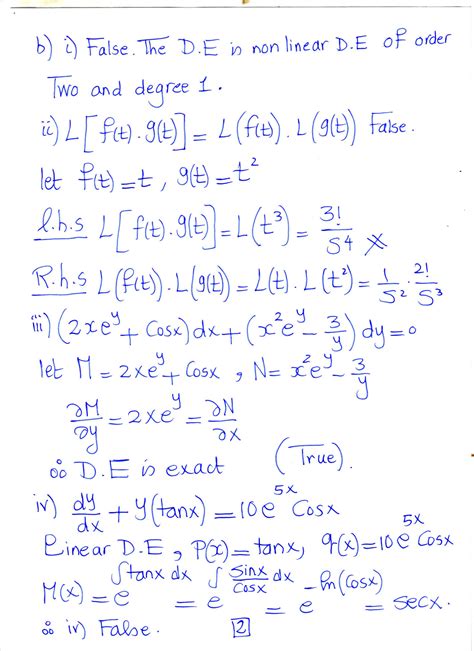 b) i) False. The D.E is non linear D.E of order
Two and degree 1.
ii) L[f(t).g(t)] = L(f(t)).L(g(t)) False.
let f(t) = t, g(t) = t²
l.h.s L[f(t).g(t)] = L(t³) = 3!/S⁴ ✗
R.h.s L(f(t)).L(g(t)) = L(t).L(t²) = 1/S² 2!/S³
iii) (2xe^y + Cosx)dx + (x²e^y - 3/y) dy = 0
let M = 2xe^y + Cosx, N = x²e^y - 3/y
∂M/∂y = 2xe^y = ∂N/∂x
∴ D.E is exact (True).
iv) dy/dx + y(tanx) = 10e^5x Cosx
Linear D.E, P(x) = tanx, q(x) = 10e^5x Cosx
M(x) = e^∫tanx dx = e^∫Sinx/Cosx dx = e^-ln(Cosx) = secx.
∴ iv) False.
2